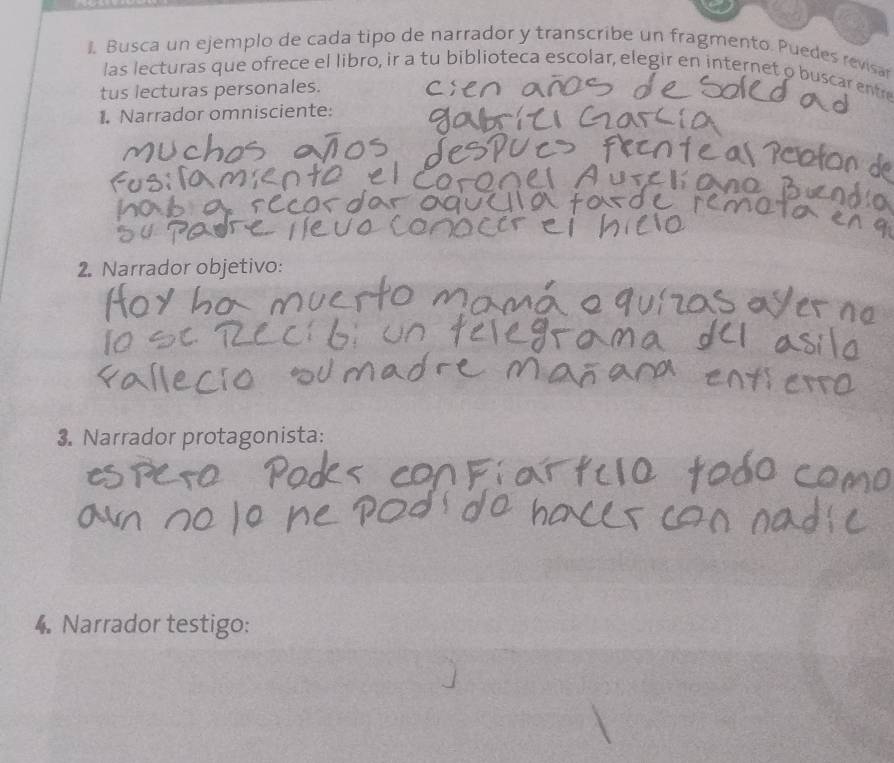 1. Busca un ejemplo de cada tipo de narrador y transcribe un fragmento. Puedes revisar
las lecturas que ofrece el libro, ir a tu biblioteca escolar, elegir en internet o buscar entre
tus lecturas personales.
cien años de Soled ad
1. Narrador omnisciente:
gabriel Garcia
muchos años despues frente al Peloton de
Fusilamiento el Coronel Aureliano Buendia
hab a recordar aquella tarde remota en q
su padre llevo conocer el hielo
2. Narrador objetivo:
Hoy ha muerto mamá o quizas ayer no
lo se Recibi un telegrama del asilo
Fallecio su madre mañana entierro
3. Narrador protagonista:
espero Poder conFiartelo todo como
aun no lo he podido hacer con nadie
4. Narrador testigo: